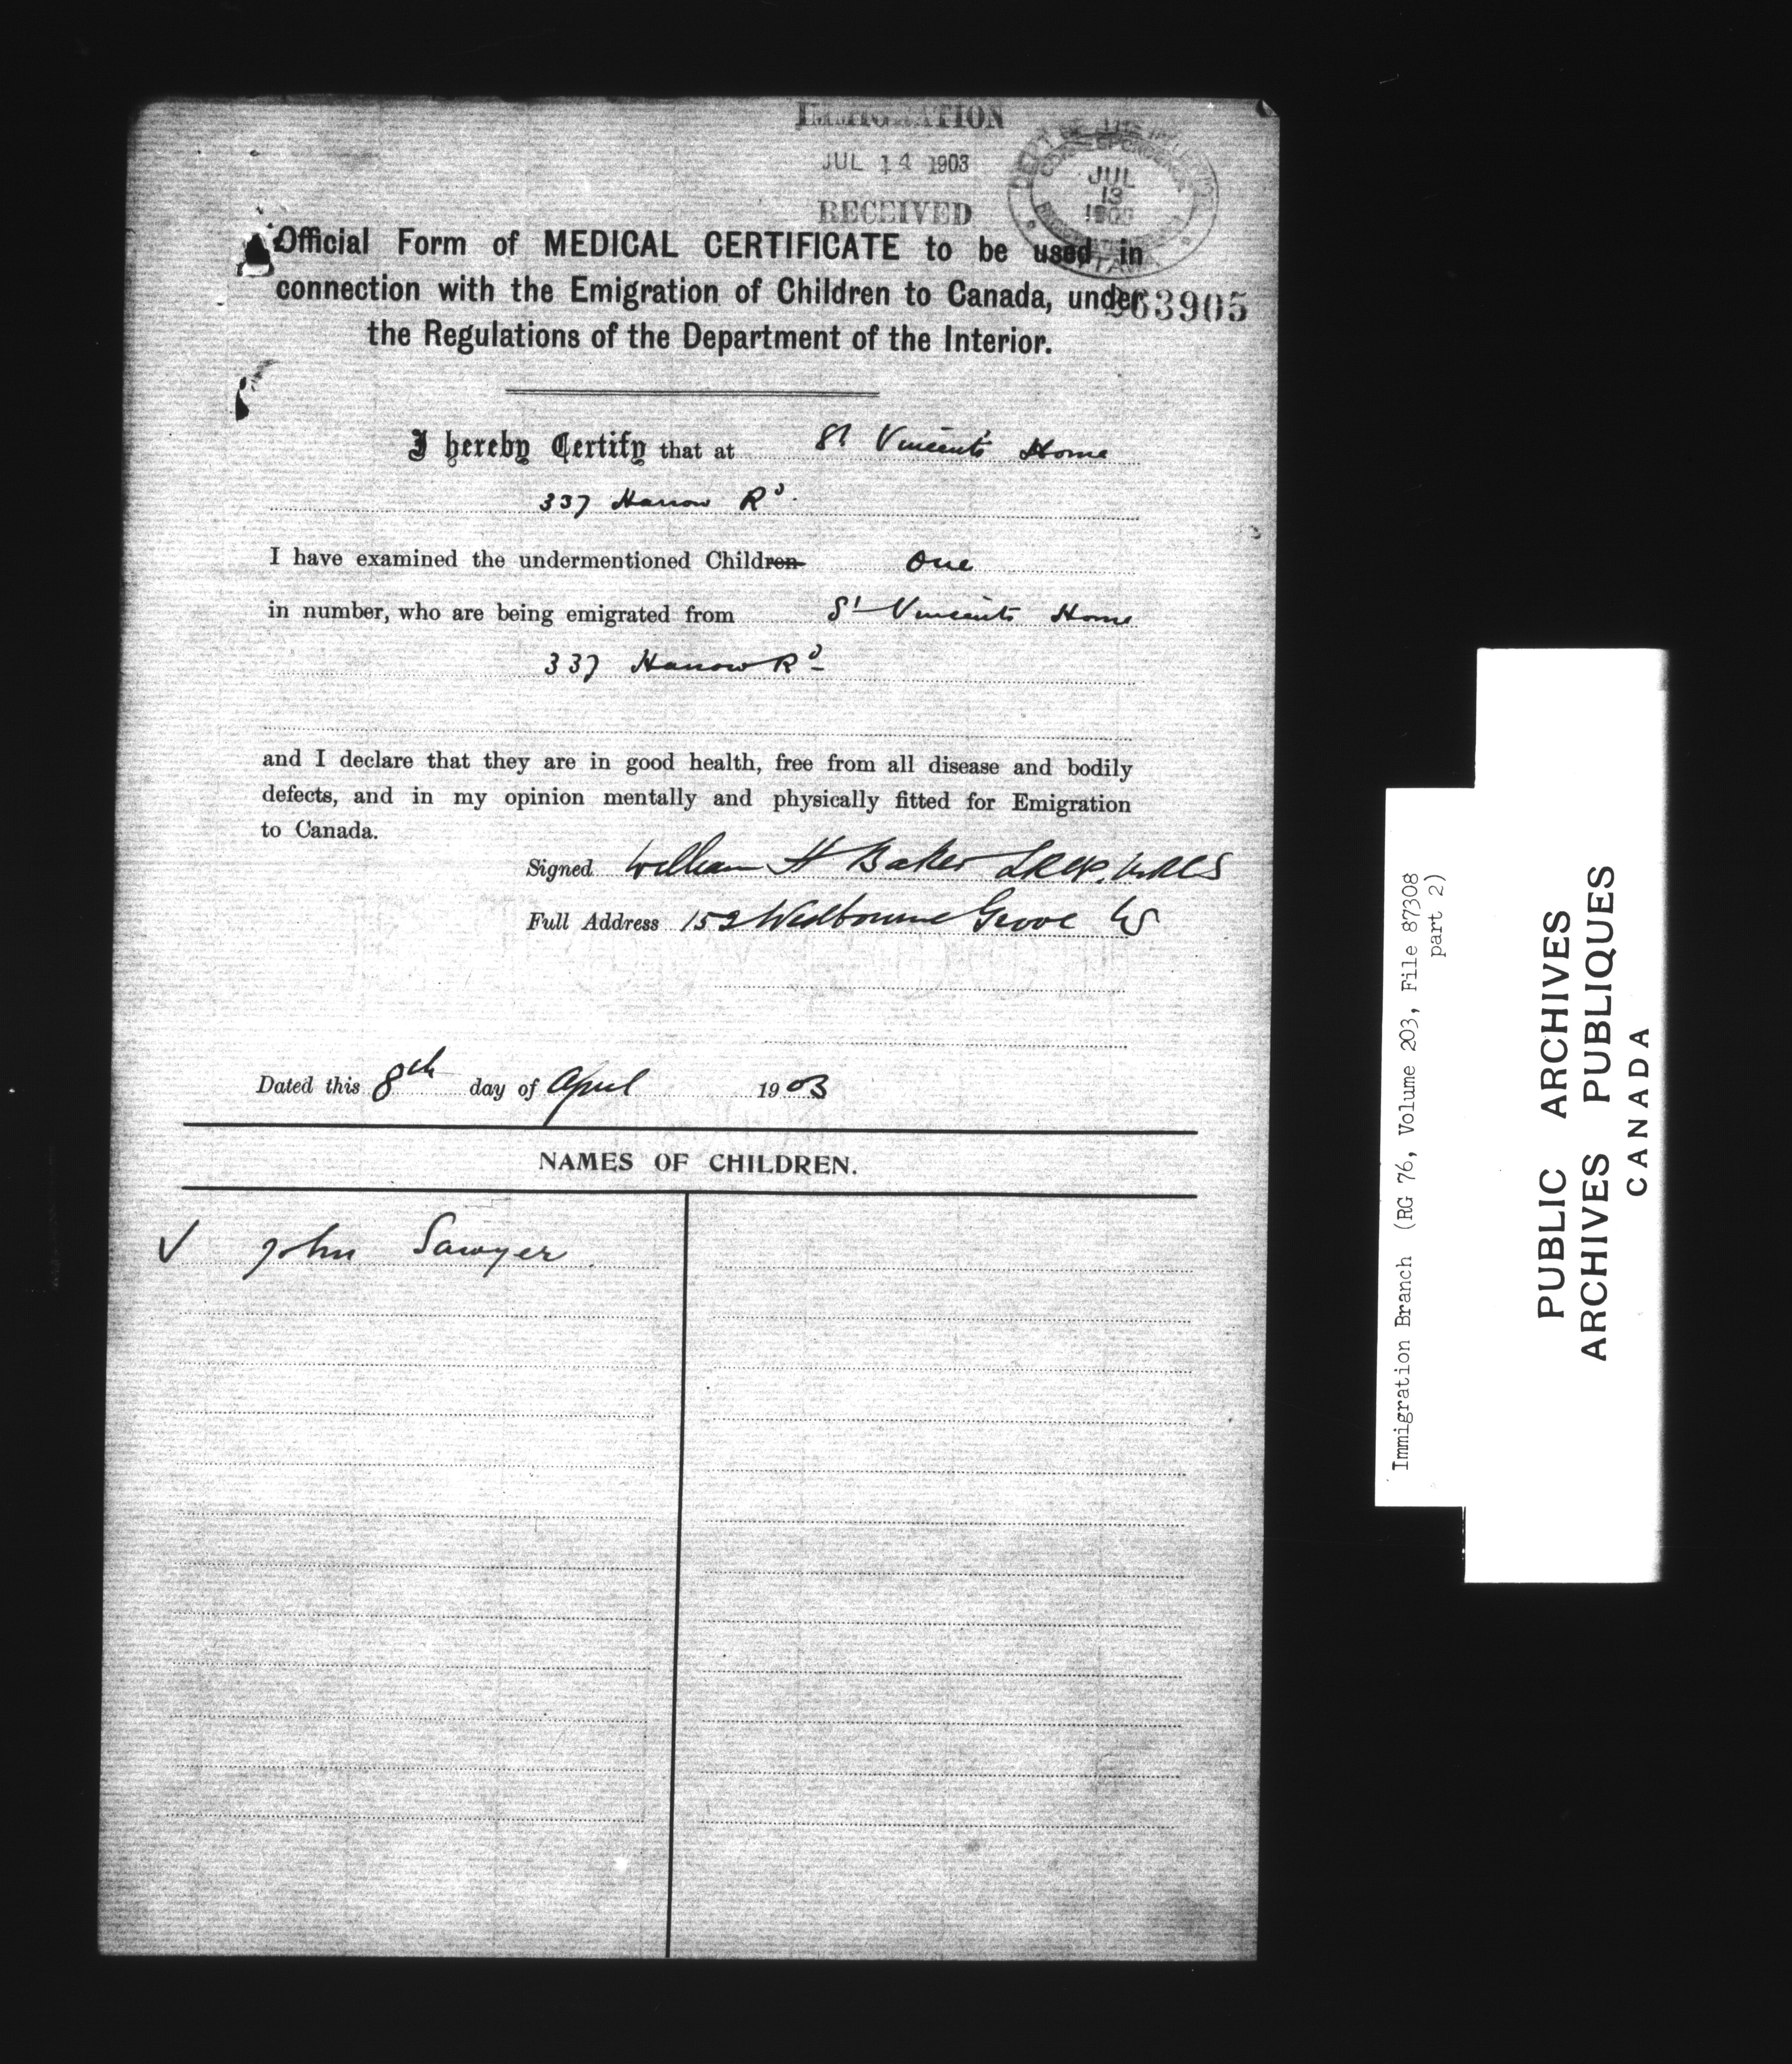 IMMIGRATION
JUL 14 1903
RECEIVED
JUL
13
1903
OTTAWA
Official Form of MEDICAL CERTIFICATE to be used in
connection with the Emigration of Children to Canada, under
63905
the Regulations of the Department of the Interior.
I hereby Certify that at St Vincent's Home
337 Harrow Rd.
I have examined the undermentioned Children one
in number, who are being emigrated from St Vincents Home
337 Harrow Rd
and I declare that they are in good health, free from all disease and bodily
defects, and in my opinion mentally and physically fitted for Emigration
to Canada.
Signed William H Baker LRCP. MRCS
Full Address 152 Westbourne Grove W
Dated this 8th day of April 1903
NAMES OF CHILDREN.
✓ John Sawyer.
Immigration Branch (RG 76, Volume 203, File 87308
part 2)
PUBLIC ARCHIVES
ARCHIVES PUBLIQUES
CANADA